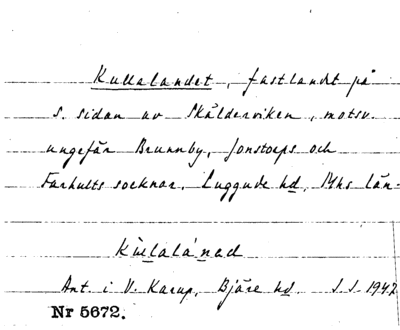 Kullalandet, fastlandt på
s. sidan av Skälderviken, motsv.
ungefär Brunnby, Jonstorps och
Farhults socknar, Luggude hd, Mhs län.
Kullalånad
Ant. i V. Karup, Bjäre hd 1942
Nr 5672.